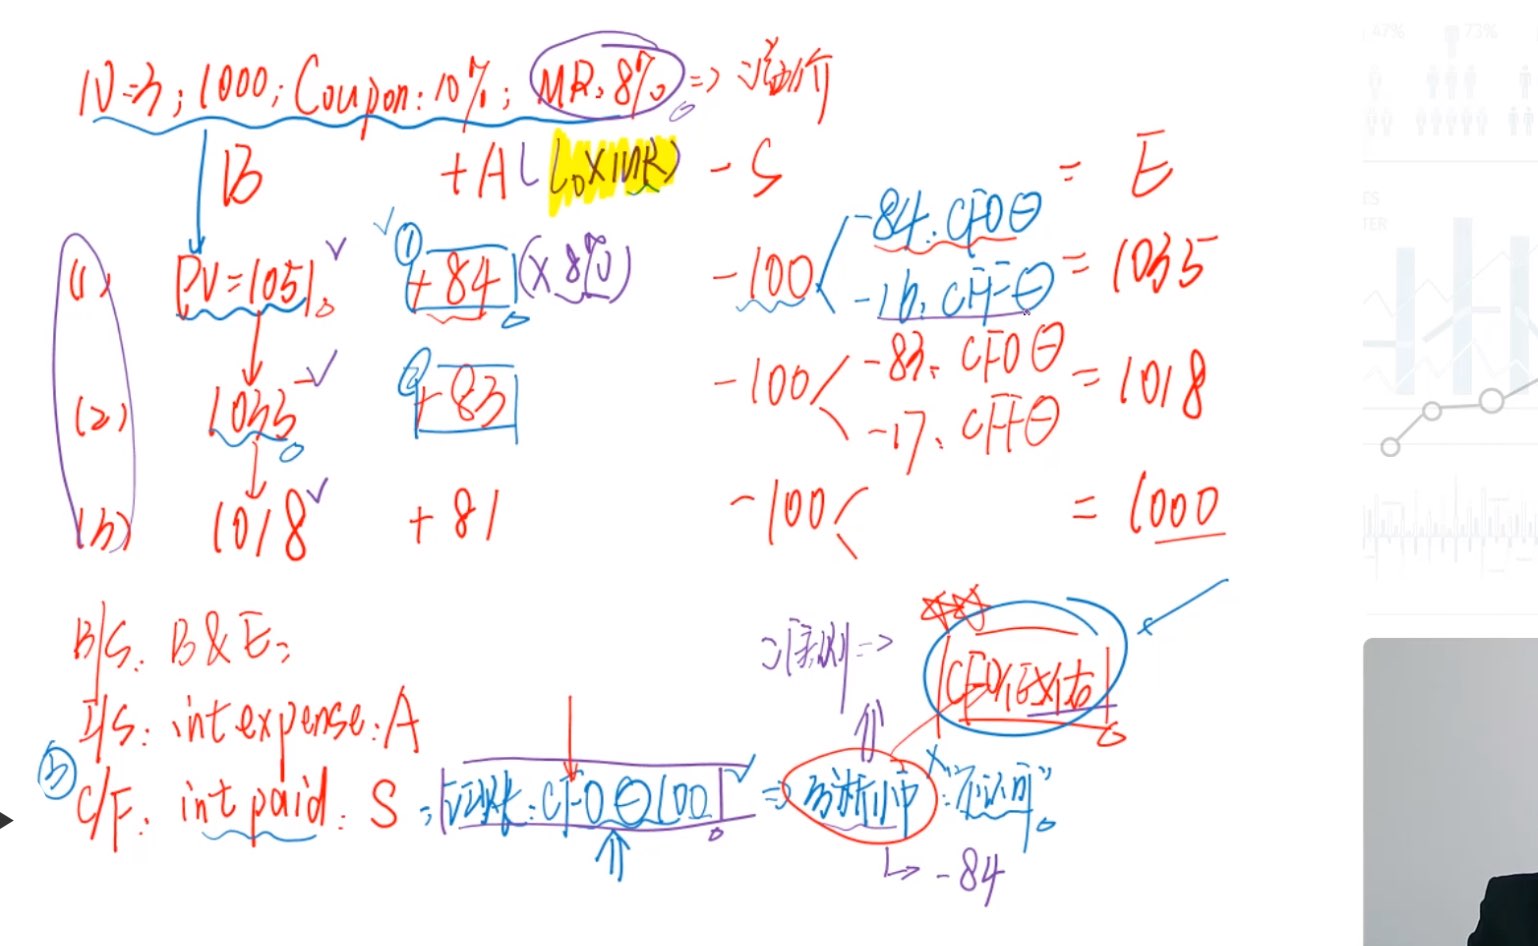 N=3; 1000; Coupon: 10%; MR: 8% => 溢价
B + A (L₀×MR) - S = E
(1) PV=1051 ① +84 (×8%) -100 -84: CFO⊖ = 1035
-16: CFF⊖
(2) 1035 ② +83 -100 -83: CFO⊖ = 1018
-17: CFF⊖
(3) 1018 +81 -100 = 1000
B/S: B & E;
I/S: int expense: A
③ C/F: int paid: S => 记账: CFO⊖100 => 分析师: "不认可"
准则 =>
CFO低估
-84
47%
73%